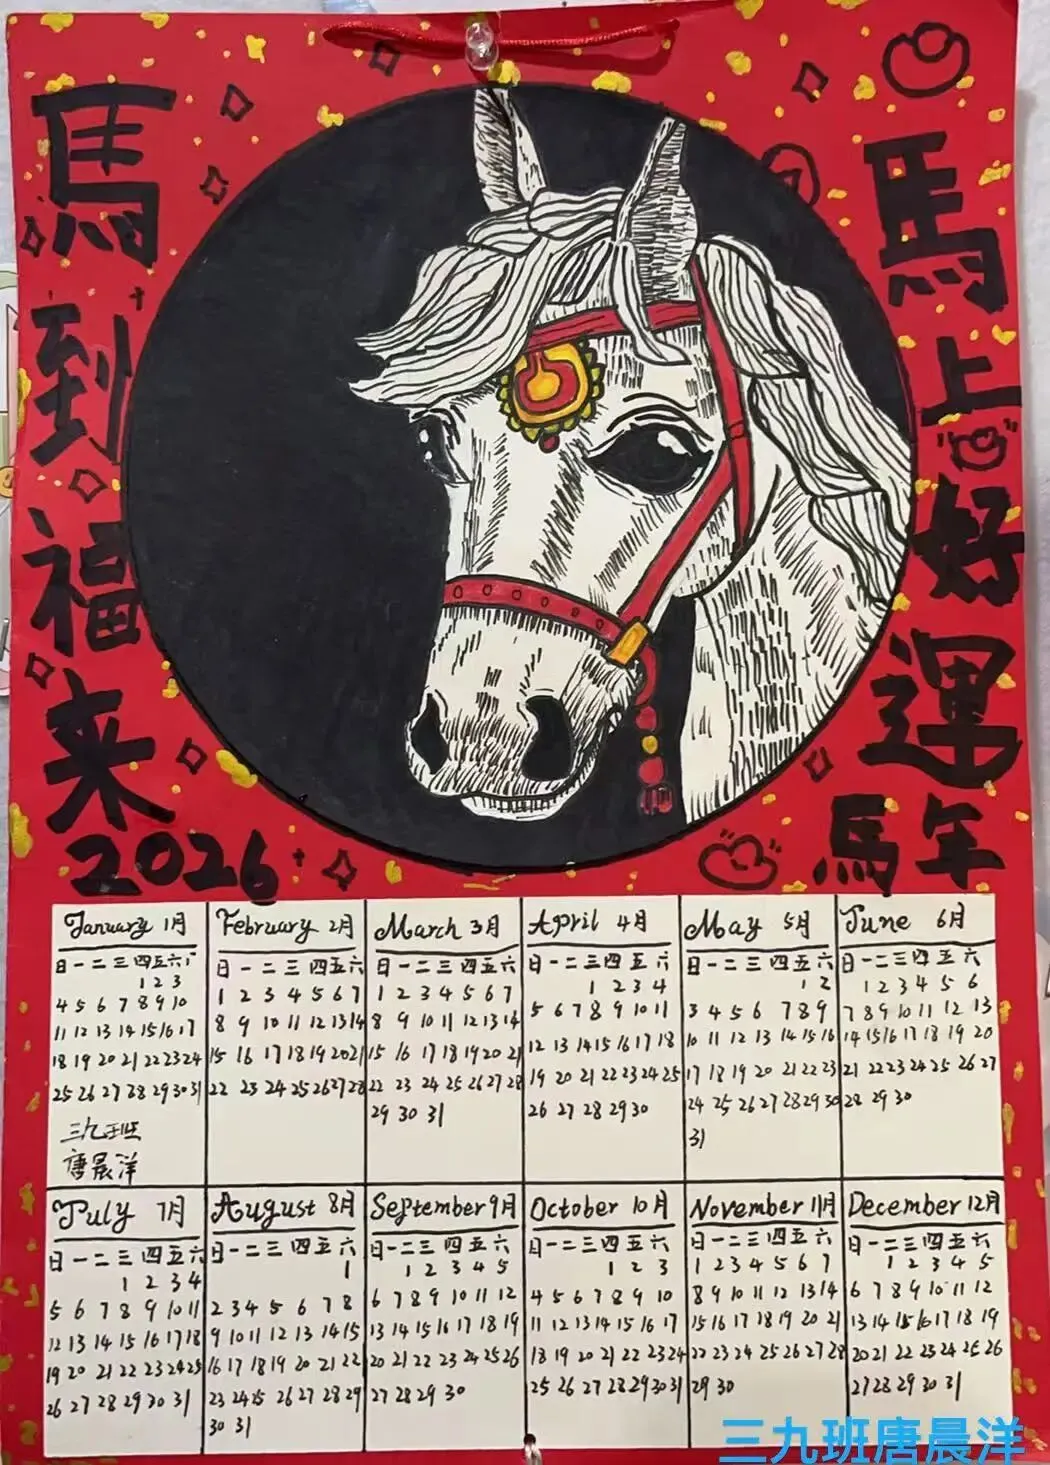 馬到福来
2026
馬上好運
馬年
January 1月
日一二三四五六
1 2 3
4 5 6 7 8 9 10
11 12 13 14 15 16 17
18 19 20 21 22 23 24
25 26 27 28 29 30 31
三九班
唐晨洋
February 2月
日一二三四五六
1 2 3 4 5 6 7
8 9 10 11 12 13 14
15 16 17 18 19 20 21
22 23 24 25 26 27 28
March 3月
日一二三四五六
1 2 3 4 5 6 7
8 9 10 11 12 13 14
15 16 17 18 19 20 21
22 23 24 25 26 27 28
29 30 31
April 4月
日一二三四五六
1 2 3 4
5 6 7 8 9 10 11
12 13 14 15 16 17 18
19 20 21 22 23 24 25
26 27 28 29 30
May 5月
日一二三四五六
1 2
3 4 5 6 7 8 9
10 11 12 13 14 15 16
17 18 19 20 21 22 23
24 25 26 27 28 29 30
31
June 6月
日一二三四五六
1 2 3 4 5 6
7 8 9 10 11 12 13
14 15 16 17 18 19 20
21 22 23 24 25 26 27
28 29 30
July 7月
日一二三四五六
1 2 3 4
5 6 7 8 9 10 11
12 13 14 15 16 17 18
19 20 21 22 23 24 25
26 27 28 29 30 31
August 8月
日一二三四五六
1
2 3 4 5 6 7 8
9 10 11 12 13 14 15
16 17 18 19 20 21 22
23 24 25 26 27 28 29
30 31
September 9月
日一二三四五六
1 2 3 4 5
6 7 8 9 10 11 12
13 14 15 16 17 18 19
20 21 22 23 24 25 26
27 28 29 30
October 10月
日一二三四五六
1 2 3
4 5 6 7 8 9 10
11 12 13 14 15 16 17
18 19 20 21 22 23 24
25 26 27 28 29 30 31
November 11月
日一二三四五六
1 2 3 4 5 6 7
8 9 10 11 12 13 14
15 16 17 18 19 20 21
22 23 24 25 26 27 28
29 30
December 12月
日一二三四五六
1 2 3 4 5
6 7 8 9 10 11 12
13 14 15 16 17 18 19
20 21 22 23 24 25 26
27 28 29 30 31
三九班唐晨洋